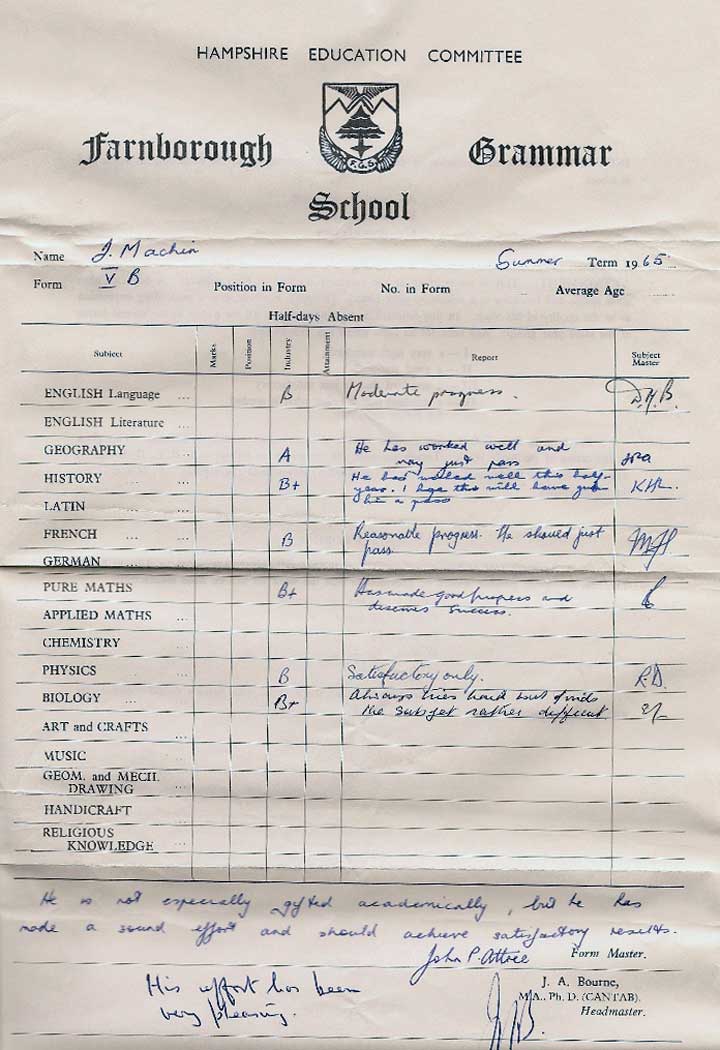 HAMPSHIRE EDUCATION COMMITTEE
F.G.S
Farnborough Grammar
School
Name J. Machin Summer Term 1965
Form V B Position in Form No. in Form Average Age
Half-days Absent
Subject Marks Position Industry Attainment Report Subject Master
ENGLISH Language ... B Moderate progress. D.H.B.
ENGLISH Literature ...
GEOGRAPHY ... A He has worked well and
may just pass JPA
HISTORY ... B+ He has worked well this half-
year. I hope this will have given
him a pass KHL.
LATIN ...
FRENCH ... B Reasonable progress. He should just
pass.
GERMAN ...
PURE MATHS ... B+ Has made good progress and
deserves success.
APPLIED MATHS ...
CHEMISTRY ...
PHYSICS ... B Satisfactory only. R.D.
BIOLOGY ... B+ Always tries hard but finds
the subject rather difficult
ART and CRAFTS ...
MUSIC ...
GEOM. and MECH.
DRAWING ...
HANDICRAFT ...
RELIGIOUS
KNOWLEDGE ...
He is not especially gifted academically, but he has
made a sound effort and should achieve satisfactory results.
John P. Attree Form Master.
His effort has been
very pleasing.
J. A. Bourne,
M.A., Ph. D. (CANTAB).
Headmaster.